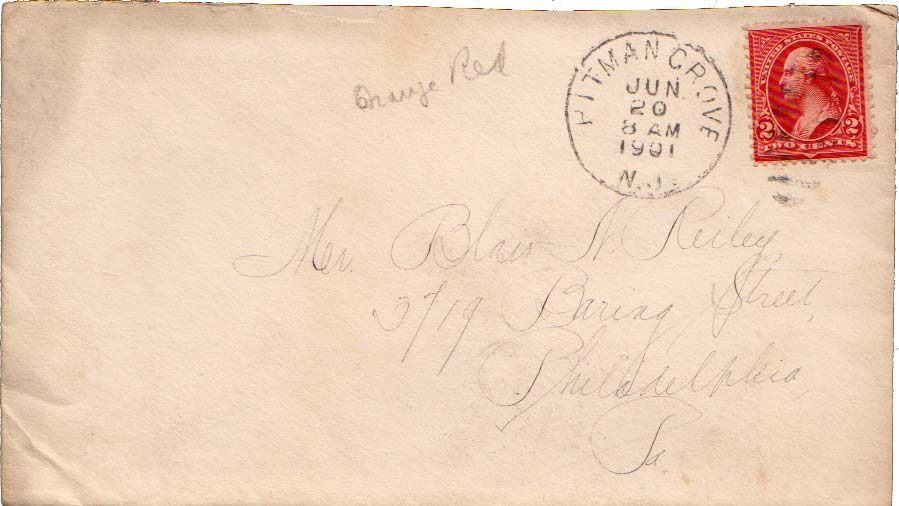 Orange Red
PITMAN GROVE
JUN
20
8 AM
1901
N.J.
UNITED STATES POSTAGE
2 2
TWO CENTS
Mr. Blair N. Reiley
3719 Baring Street,
Philadelphia,
Pa.